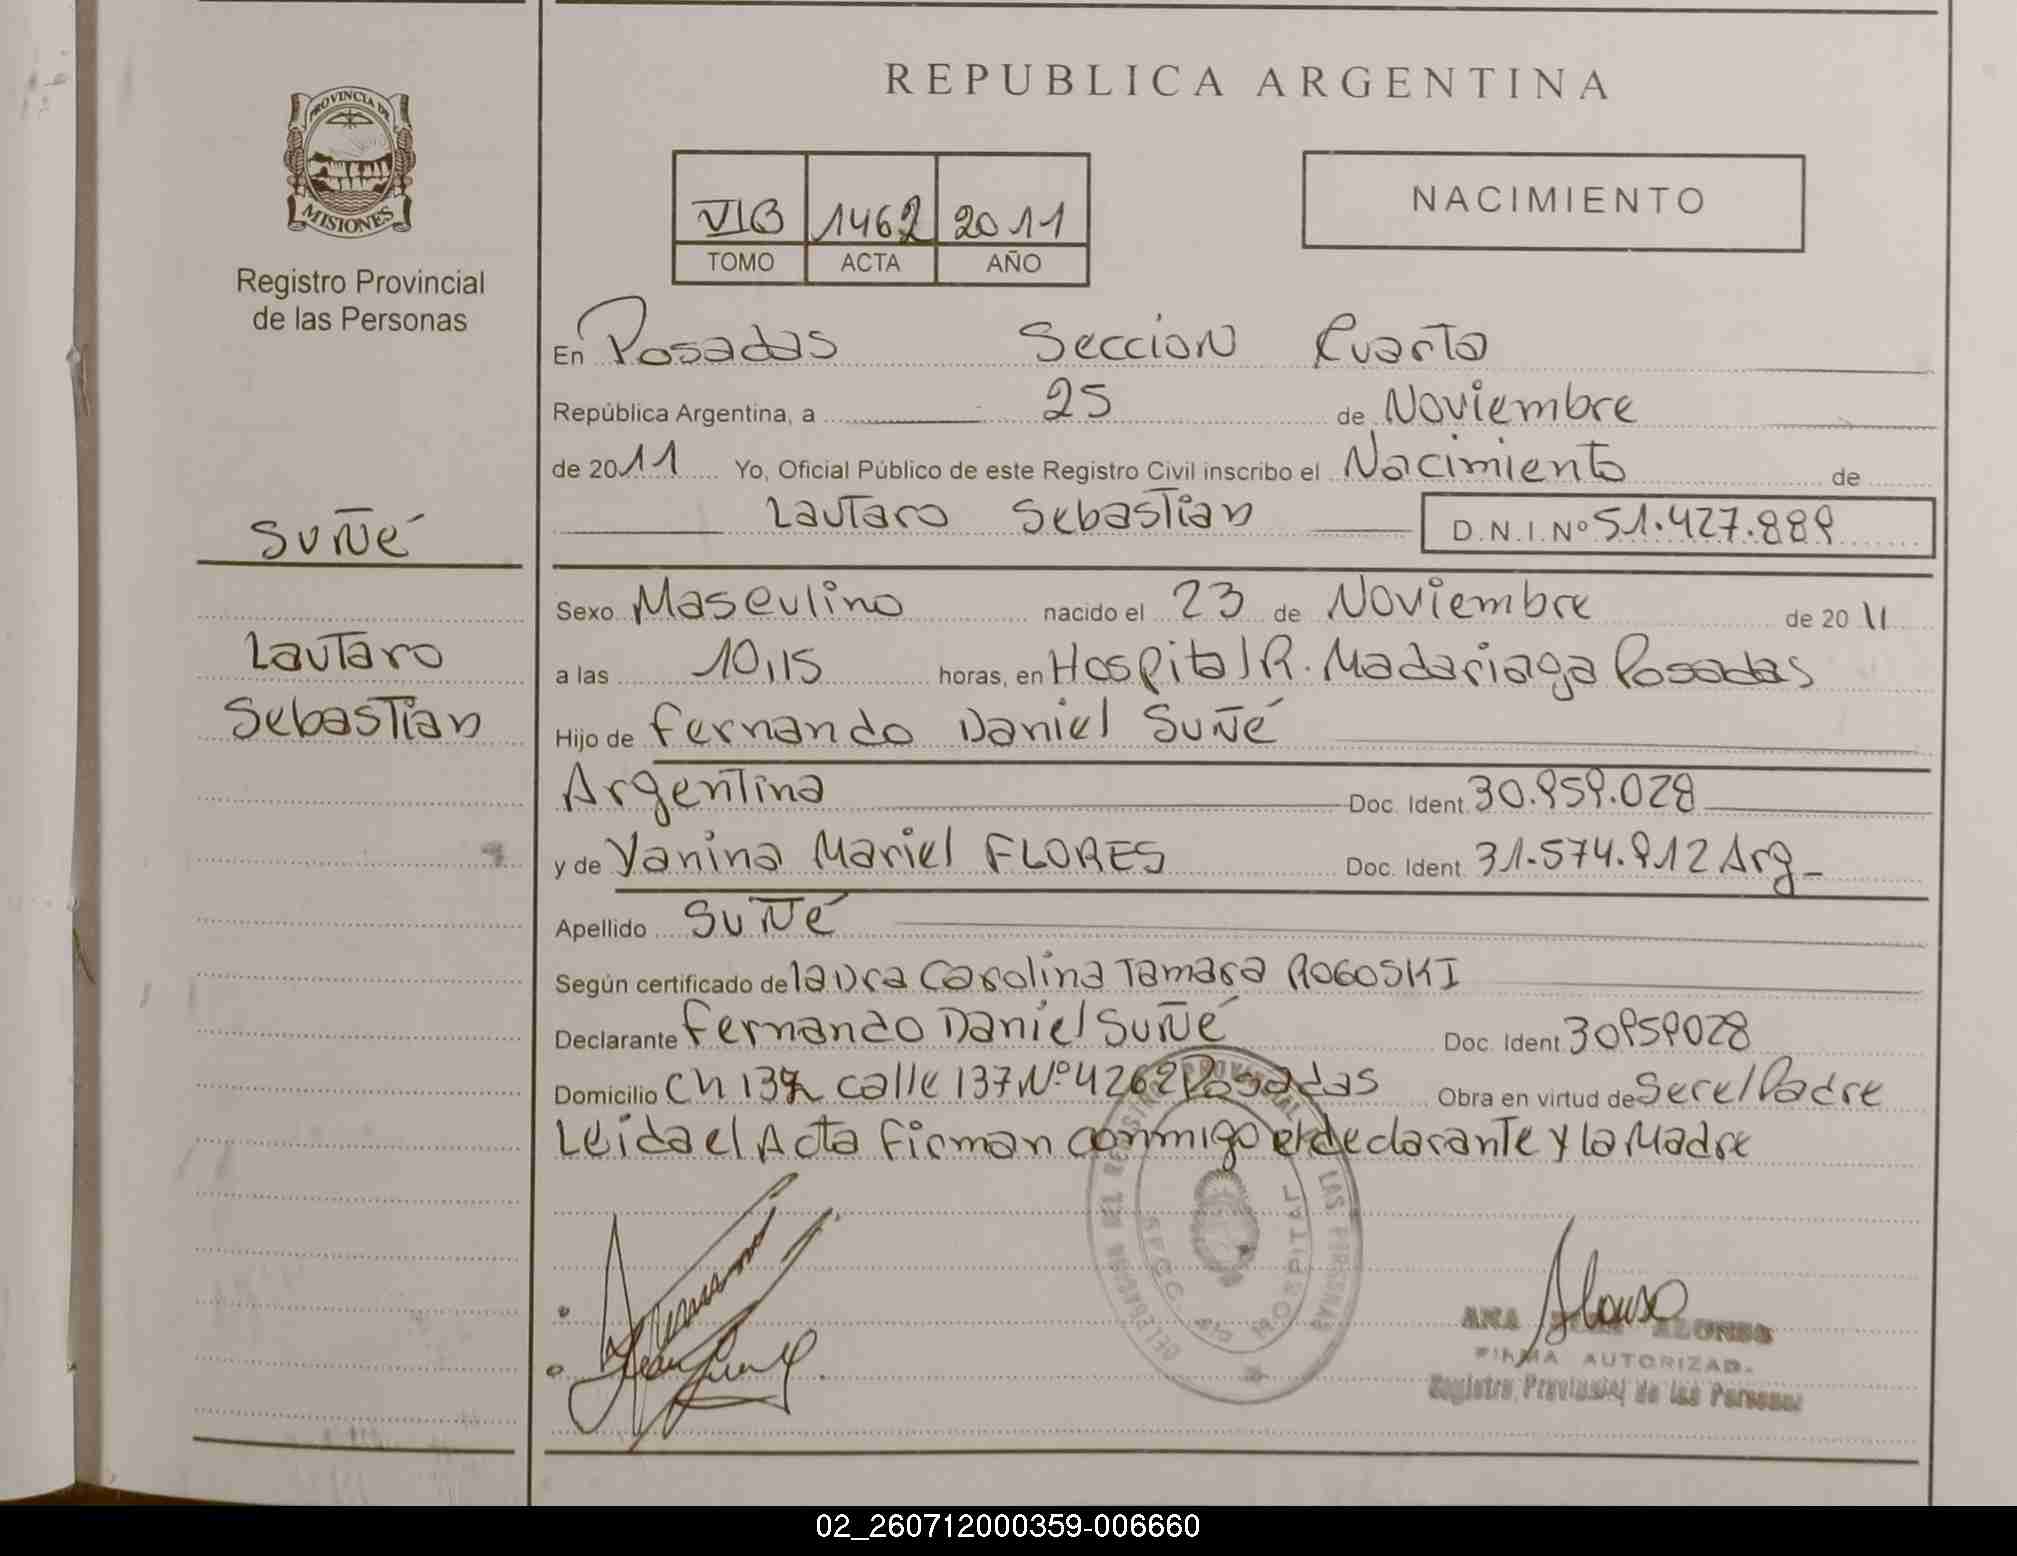 REPUBLICA ARGENTINA
PROVINCIA DE
MISIONES
Registro Provincial
de las Personas
VIB 1462 2011
TOMO ACTA AÑO
NACIMIENTO
En Posadas Seccion Cuarta
República Argentina, a 25 de Noviembre
de 2011 Yo, Oficial Público de este Registro Civil inscribo el Nacimiento de
Lautaro Sebastian D.N.I. Nº 51.427.889
Suñé
Lautaro
Sebastian
Sexo Masculino nacido el 23 de Noviembre de 2011
a las 10,15 horas, en Hospital R. Madariaga Posadas
Hijo de Fernando Daniel Suñé
Argentina Doc. Ident. 30.959.028
y de Yanina Mariel FLORES Doc. Ident. 31.574.912 Arg
Apellido Suñé
Según certificado de Laura Carolina Tamara ROGOSKI
Declarante Fernando Daniel Suñé Doc. Ident. 30959028
Domicilio Ch 137 calle 137 Nº 4262 Posadas Obra en virtud de Ser el Padre
Leida el Acta Firman conmigo el declarante y la Madre
HOSPITAL
Alonso
ANA ALONSO
FIRMA AUTORIZAD.
Registro Provincial de las Personas
02_260712000359-006660